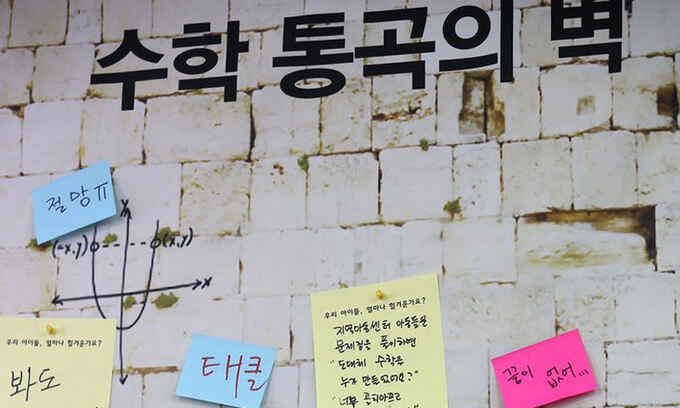 수학 통곡의 벽
절망π
x
(-x,y)
(x,y)
x
우리 아이들, 얼마나 힘겨운가요?
봐도
태클
우리 아이들, 얼마나 힘겨운가요?
지역아동센터 아동들은
문제집을 풀이하면
"도대체 수학을
누가 만든었어요?"
"너무 골치아프고
끝이 없어...